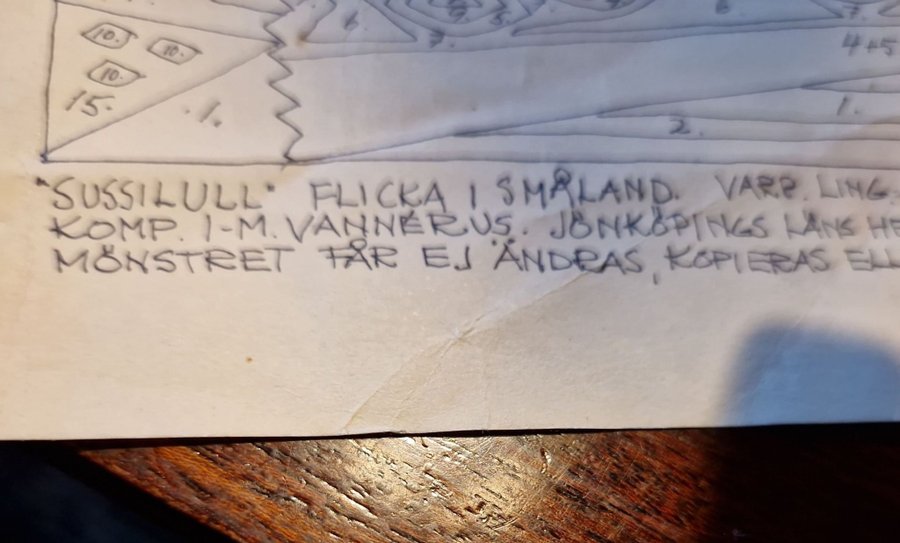 6. 9. 8. 6. 7.
7.
10. 10. 4+5
10.
15. 1. 2. 1.
"SUSSILULL" FLICKA I SMÅLAND. VARP. LING.
KOMP. I-M. VANNÉRUS. JÖNKÖPINGS LÄNS HE
MÖNSTRET FÅR EJ ÄNDRAS, KOPIERAS ELL